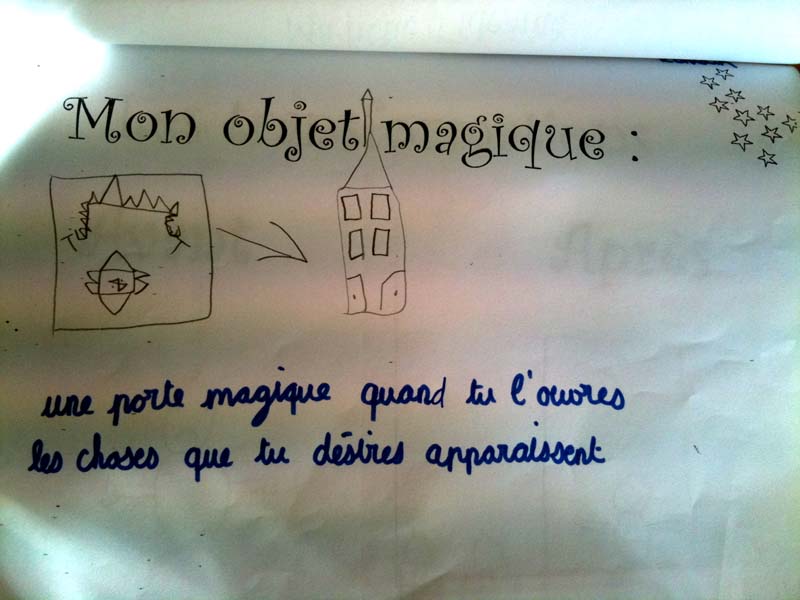 Mon objet magique :
une porte magique quand tu l'ouvres
les choses que tu désires apparaissent